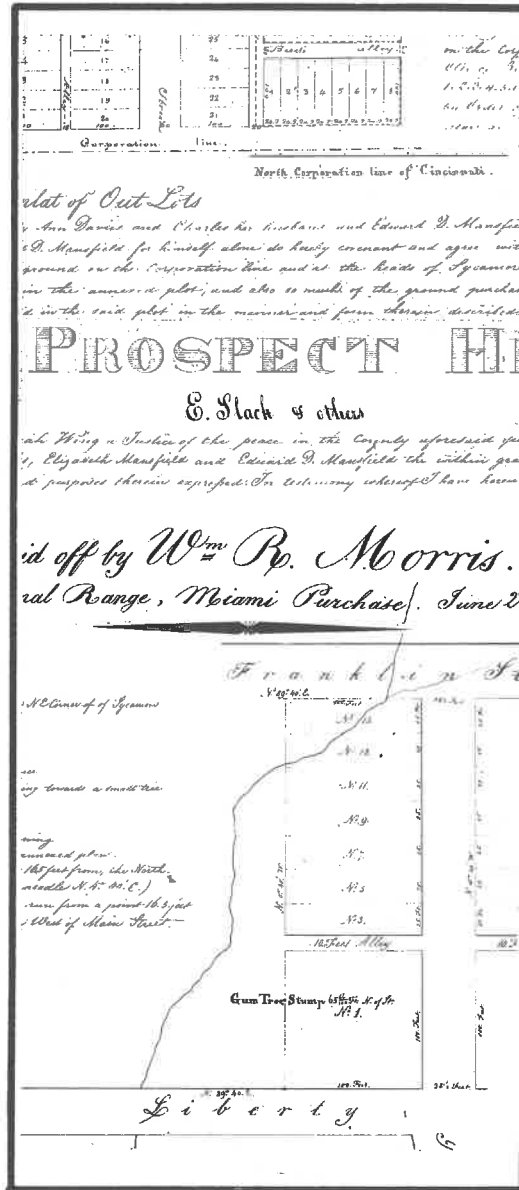 16
17
18
19
20
25
24
23
22
21
100
Beech alley
2 3 4 5 6 7 8
on the Cor
1. 2. 3. 4. 5.
Corporation line.
North Corporation line of Cincinnati.
plat of Out Lots
Ann Davies and Charles her husband and Edward D. Mansfie
D. Mansfield for himself alone do hereby covenant and agree wit
ground on the Corporation line and at the heads of Sycamor
in the annexed plot, and also so much of the ground purcha
d in the said plot in the manner and form therein described
PROSPECT H
E. Slack & others
ah Wing a Justice of the peace in the County aforesaid
s, Elizabeth Mansfield and Edward D. Mansfield the within gra
d purposes therein expressed. In testimony whereof I have hereun
id off by Wm R. Morris.
nal Range, Miami Purchase. June 2
Franklin St
N. 89° 40. E.
100 Feet
N.E. Corner of of Sycamore
No. 15.
No. 13.
ing towards a small tree
No. 11.
No. 9.
ning
annexed plan.
No. 7.
165 feet from, the North.
needle N. 4° 20' E.)
No. 5
run from a point 16.5 feet
West of Main Street.
No. 3.
10. Feet Alley
10. F
Gum Tree Stump N. of St.
No. 1.
100. Feet.
100. Feet.
89°. 40.
100. Feet.
Liberty